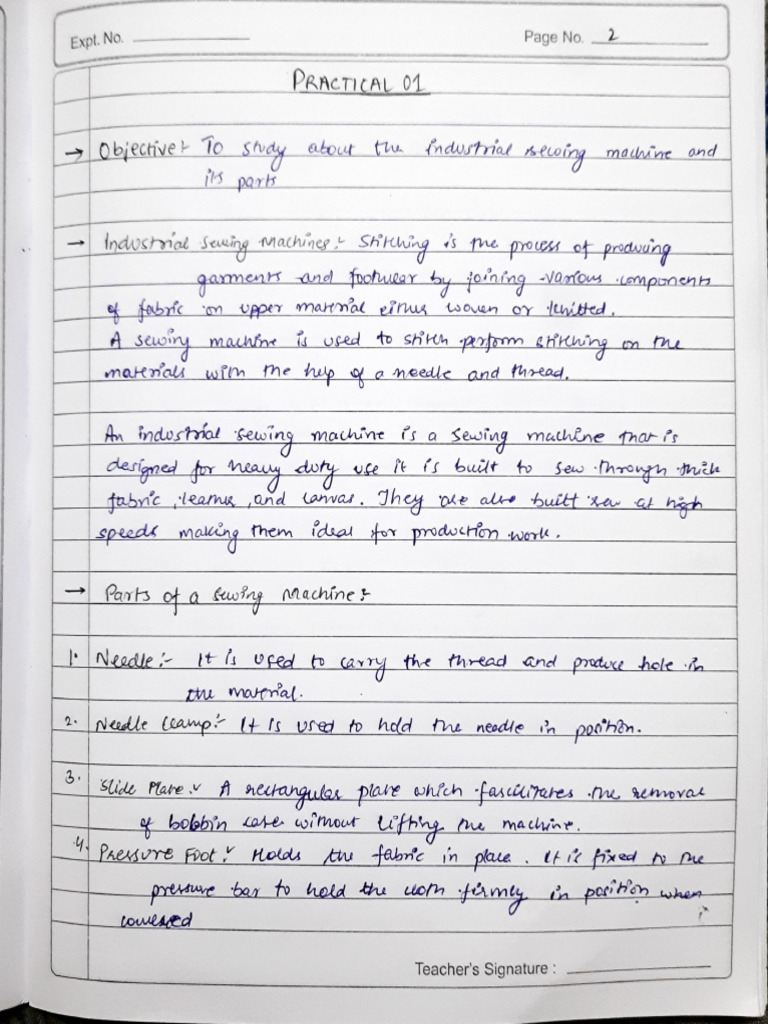 Expt. No.
Page No. 2
PRACTICAL 01
→ Objective:- To study about the industrial sewing machine and
its parts
→ Industrial Sewing Machines:- Stitching is the process of producing
garments and footwear by joining various components
of fabric on upper material either woven or knitted.
A sewing machine is used to stitch perform stitching on the
materials with the help of a needle and thread.
An industrial sewing machine is a sewing machine that is
designed for heavy duty use it is built to sew through thick
fabric, leather, and canvas. They are also built sew at high
speeds making them ideal for production work.
→ Parts of a sewing Machine:-
1. Needle:- It is used to carry the thread and produce hole in
the material.
2. Needle Clamp:- It is used to hold the needle in position.
3. Slide Plate:- A rectangular plate which fascilitates the removal
of bobbin case without lifting the machine.
4. Pressure Foot:- Holds the fabric in place. It is fixed to the
pressure bar to hold the cloth firmly in position when
lowered
Teacher's Signature :